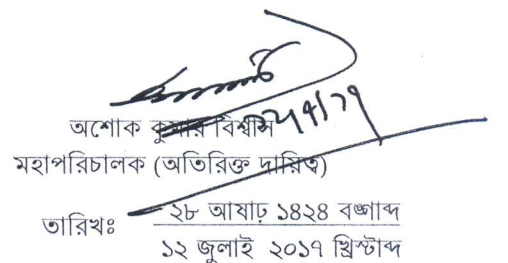 অশোক কুমার বিশ্বাস
মহাপরিচালক (অতিরিক্ত দায়িত্ব)
তারিখঃ
২৮ আষাঢ় ১৪২৪ বঙ্গাব্দ
১২ জুলাই ২০১৭ খ্রিস্টাব্দ